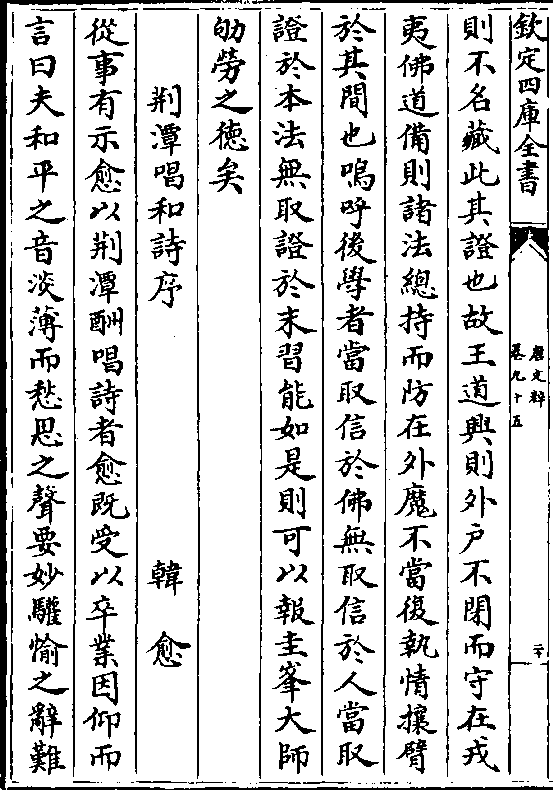 欽定四庫全書
唐文粹
卷九十五
二十
則不名藏此其證也故王道興則外戶不閉而守在戎
夷佛道備則諸法總持而防在外魔不當復執情攘臂
於其間也嗚呼後學者當取信於佛無取信於人當取
證於本法無取證於末習能如是則可以報圭峯大師
劬勞之德矣
荆潭唱和詩序 韓愈
從事有示愈以荆潭酬唱詩者愈既受以卒業因仰而
言曰夫和平之音淡薄而愁思之聲要妙驩愉之辭難